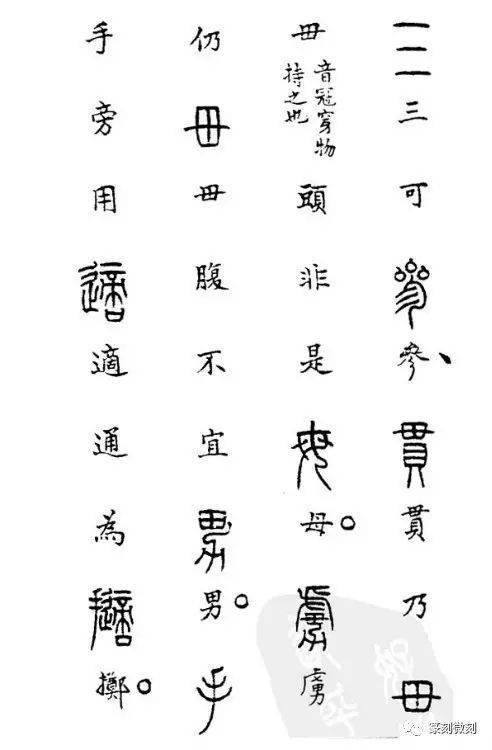 三三可參參、貫貫乃毌
毌音冠穿物持之也頭非是母母。虜虜
仍毌毌腹不宜男男。手
手旁用適適通為擿擲。
篆刻微刻